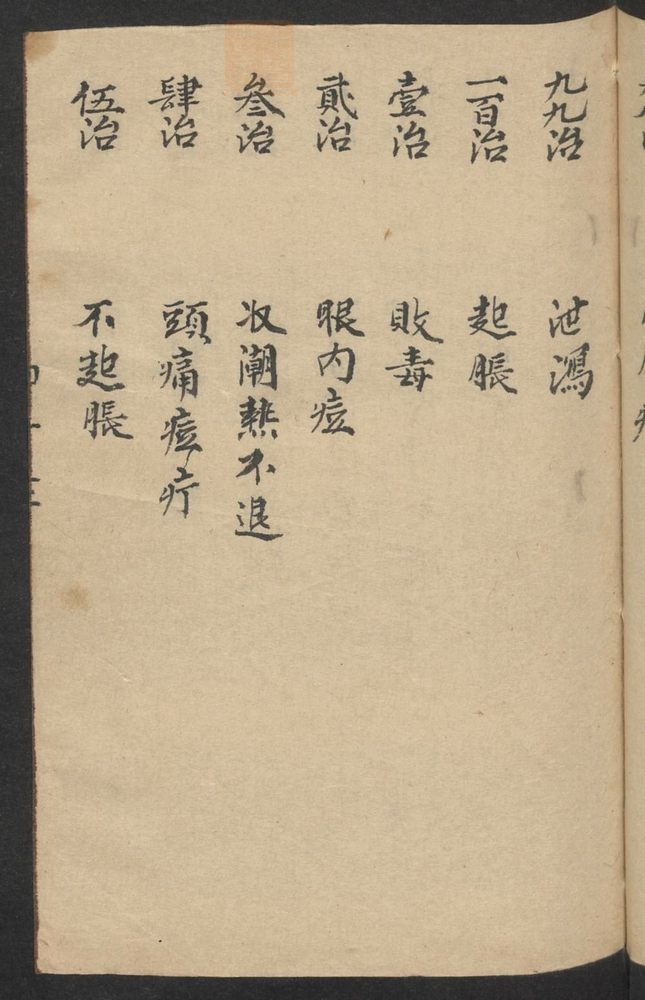 九九治 泄瀉
一百治 起脹
壹治 敗毒
貳治 眼内痘
叁治 收潮熱不退
肆治 頭痛痘疔
伍治 不起脹